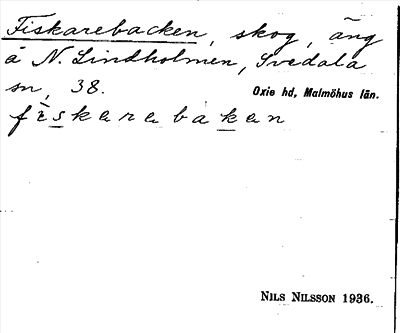 Fiskarebacken, skog, äng
å N. Lindholmen, Svedala
sn, 38. Oxie hd, Malmöhus län.
fìskarabakan
NILS NILSSON 1936.